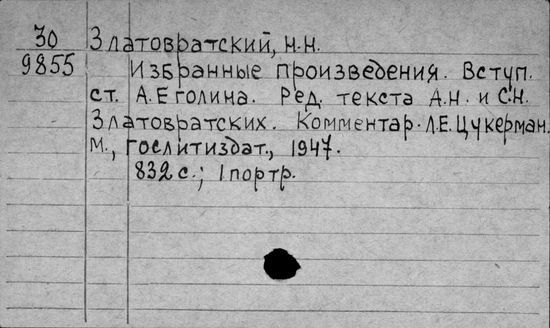 30 Златовратский, Н.Н.
9855 Избранные произведения. Вступ.
ст. А.Еголина. Ред. текста А.Н. и С.Н.
Златовратских. Комментар. Л.Е.Цукерман.
М., Гослитиздат., 1947.
832 с.; 1 портр.